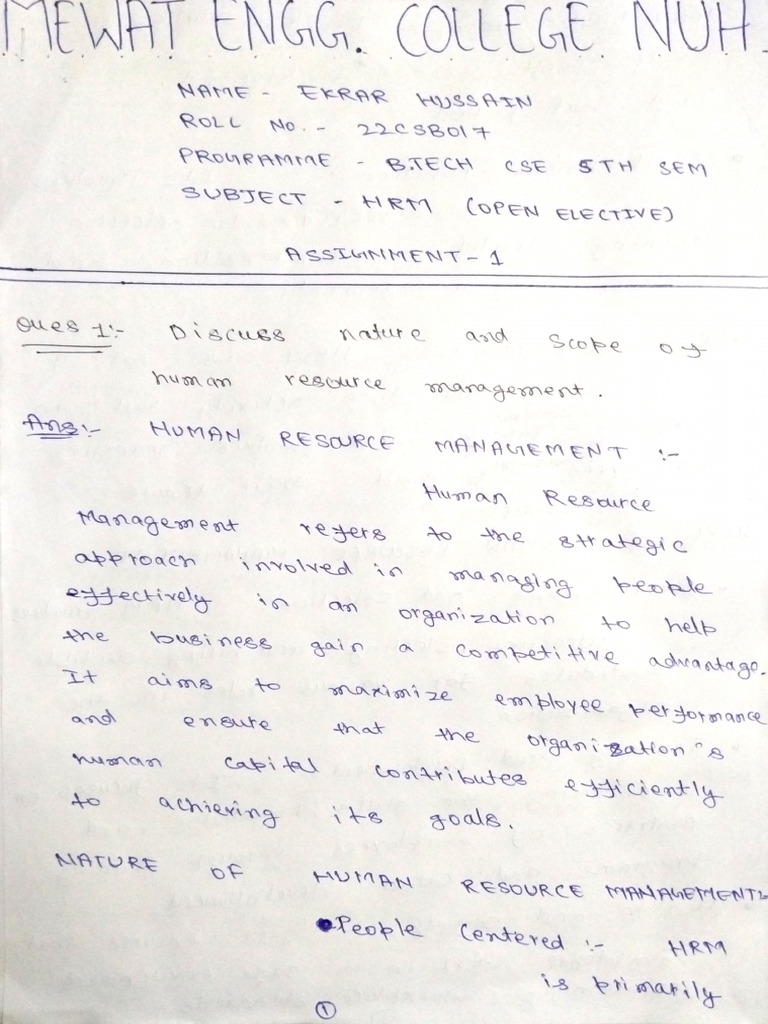 MEWAT ENGG. COLLEGE NUH.
NAME - EKRAR HUSSAIN
ROLL NO. - 22CSB017
PROGRAMME - B.TECH CSE 5TH SEM
SUBJECT - HRM (OPEN ELECTIVE)
ASSIGNMENT - 1
Ques 1:- Discuss nature and scope of
human resource management.
Ans:- HUMAN RESOURCE MANAGEMENT :-
Human Resource
Management refers to the strategic
approach involved in managing people
effectively in an organization to help
the business gain a competitive advantage.
It aims to maximize employee performance
and ensure that the organization's
human capital contributes efficiently
to achieving its goals.
NATURE OF HUMAN RESOURCE MANAGEMENT:-
• People Centered :- HRM
is primarily
1